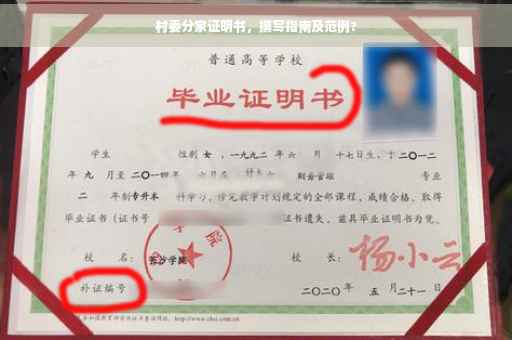 村委分家证明书，撰写指南及范例？
普通高等学校
毕业证明书
学生 性别 女，一九九二年 六 月 十七日生，于 二〇一二
年 九 月至 二〇一四年 六月在 财务管理 专业
二 年制专升本 科学习，修完教学计划规定的全部课程，成绩合格，取得
毕业证书（证书号 证书遗失，兹具毕业证明书为凭。
校 名： 长沙学院 校 长： 杨小云
补证编号 二〇二〇年 五 月 二十一日
http://www.chsi.com.cn